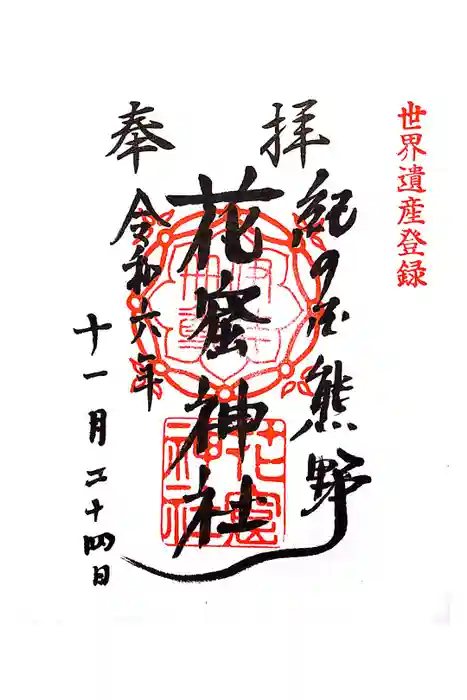 世界遺産登録
奉拝
紀の国熊野
花窟神社
令和六年
十一月二十四日
花窟神社